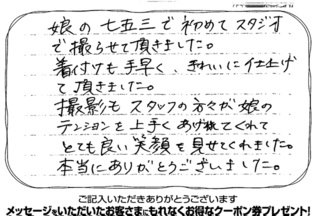 娘の七五三で初めてスタジオ
で撮らせて頂きました。
着付けも手早く、きれいに仕上げ
て頂きました。
撮影もスタッフの方々が娘の
テンションを上手くあげてくれて
とても良い笑顔を見せてくれました。
本当にありがとうございました。
ご記入いただきありがとうございます
メッセージをいただいたお客さまにもれなくお得なクーポン券プレゼント!